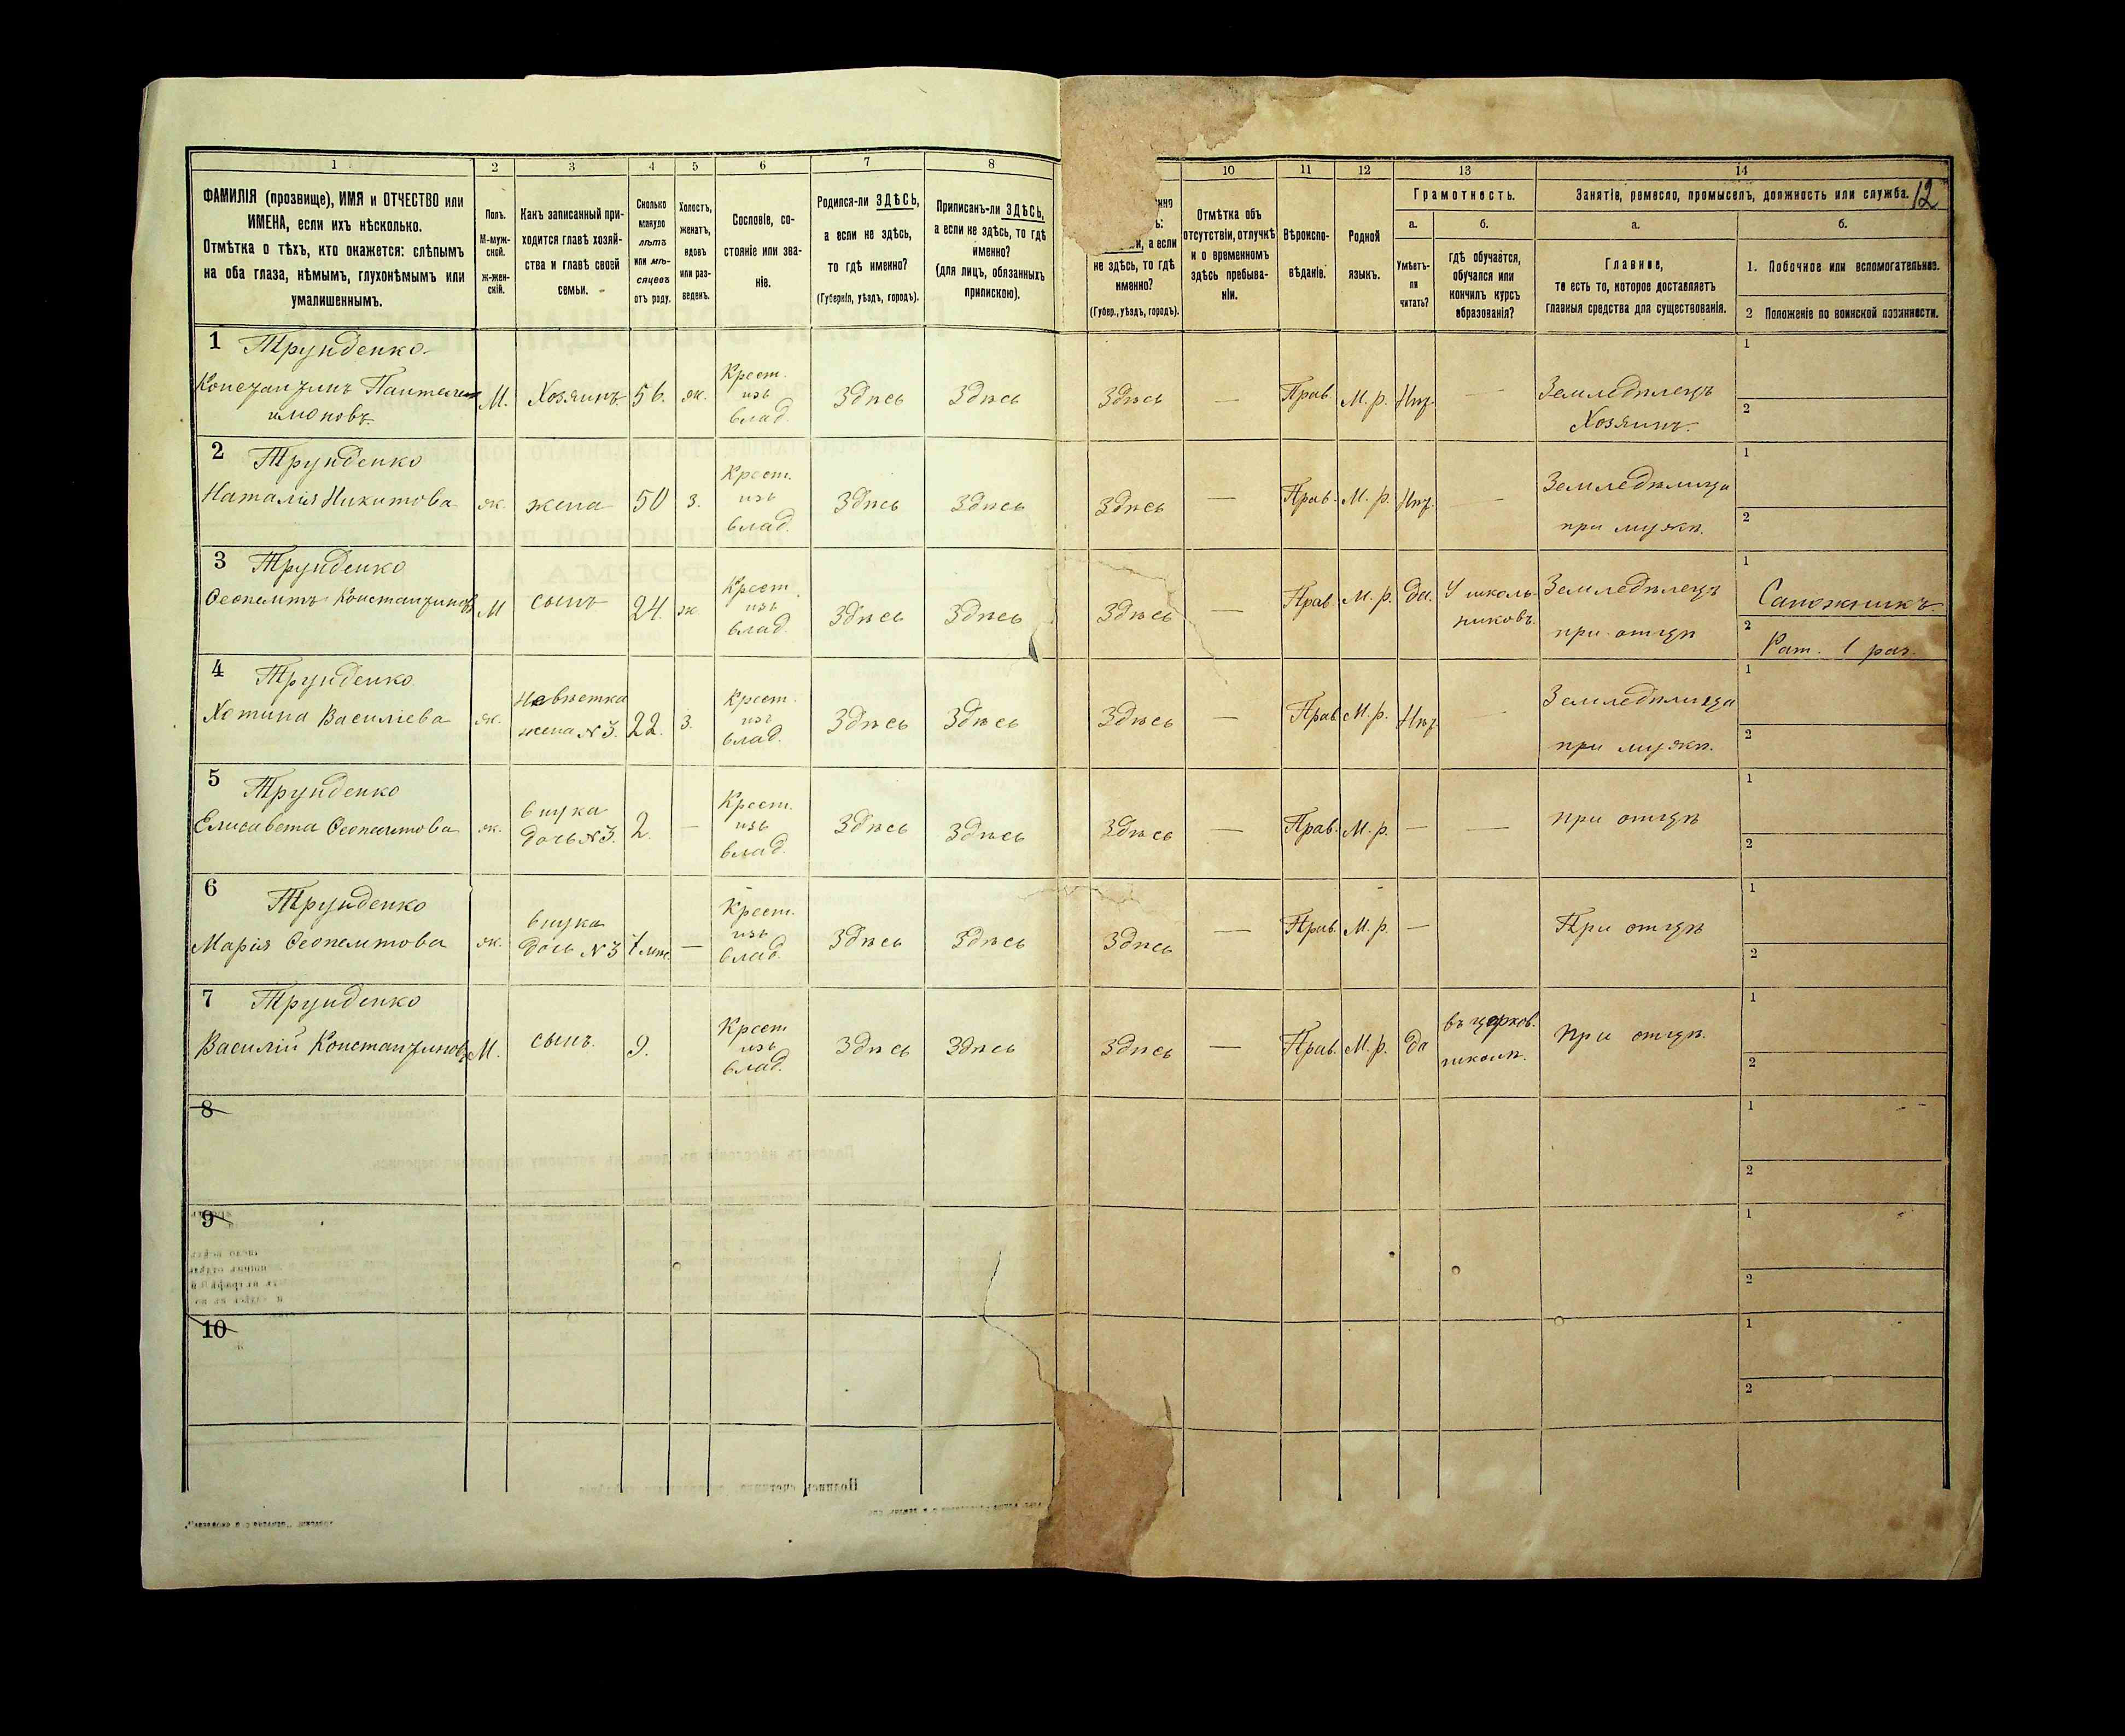 1
2
3
4
5
6
7
8
10
11
12
13
14
ФАМИЛІЯ (прозвище), ИМЯ и ОТЧЕСТВО или
ИМЕНА, если ихъ нѣсколько.
Отмѣтка о тѣхъ, кто окажется: слѣпымъ
на оба глаза, нѣмымъ, глухонѣмымъ или
умалишеннымъ.
Полъ.
М-муж-
ской.
ж-жен-
скій.
Какъ записанный при-
ходится главѣ хозяй-
ства и главѣ своей
семьи.
Сколько
минуло
лѣтъ
или мѣ-
сяцевъ
отъ роду.
Холостъ,
женатъ,
вдовъ
или раз-
веденъ.
Сословіе, со-
стояніе или зва-
ніе.
Родился-ли ЗДѢСЬ,
а если не здѣсь,
то гдѣ именно?
(Губернія, уѣздъ, городъ).
Приписанъ-ли ЗДѢСЬ,
а если не здѣсь, то гдѣ
именно?
(для лицъ, обязанныхъ
припискою).
а если
не здѣсь, то гдѣ
именно?
(Губер., уѣздъ, городъ).
Отмѣтка объ
отсутствіи, отлучкѣ
и о временномъ
здѣсь пребыва-
ніи.
Вѣроиспо-
вѣданіе.
Родной
языкъ.
Грамотность.
а.
Умѣетъ-
ли
читать?
б.
гдѣ обучается,
обучался или
кончилъ курсъ
образованія?
Занятіе, ремесло, промыселъ, должность или служба.
12
а.
Главное,
то есть то, которое доставляетъ
главныя средства для существованія.
б.
1. Побочное или вспомогательное.
2 Положеніе по воинской повинности.
1 Трунденко
Константинъ Пантелеи
имоновъ.
М.
Хозяинъ.
56.
ж.
Крест.
изъ
влад.
Здѣсь
Здѣсь
Здѣсь
—
Прав.
М. р.
Нѣт.
—
Земледѣлецъ
Хозяинъ.
1
2
2 Трунденко
Наталія Никитова
ж.
жена
50
з.
Крест.
изъ
влад.
Здѣсь
Здѣсь
Здѣсь
—
Прав.
М. р.
Нѣт.
—
Земледѣлица
при мужѣ.
1
2
3 Трунденко
Феопемтъ Константиновъ
М
сынъ
24.
ж
Крест.
изъ
влад.
Здѣсь
Здѣсь
Здѣсь
—
Прав.
М. р.
да.
У школь-
никовъ.
Земледѣлецъ
при отцѣ
1
Сапожникъ.
2
Рат. 1 раз.
4 Трунденко
Хотина Василіева
ж.
Невѣстка
жена №3.
22.
з.
Крест.
изъ
влад.
Здѣсь
Здѣсь
Здѣсь
—
Прав.
М. р.
Нѣт
—
Земледѣлица
при мужѣ.
1
2
5 Трунденко
Елисавета Феопемтова
ж.
внука
дочь №3.
2.
—
Крест.
изъ
влад.
Здѣсь
Здѣсь
Здѣсь
—
Прав.
М. р.
—
—
при отцѣ
1
2
6 Трунденко
Марія Феопемтова
ж.
внука
дочь №3
—
Крест.
изъ
влад.
Здѣсь
Здѣсь
Здѣсь
—
Прав.
М. р.
—
При отцѣ
1
2
7 Трунденко
Василій Константиновъ
М.
сынъ.
9.
Крест
изъ
влад.
Здѣсь
Здѣсь
Здѣсь
—
Прав.
М. р.
да
въ церков.
школѣ.
При отцѣ.
1
2
8
1
2
9
1
2
10
1
2